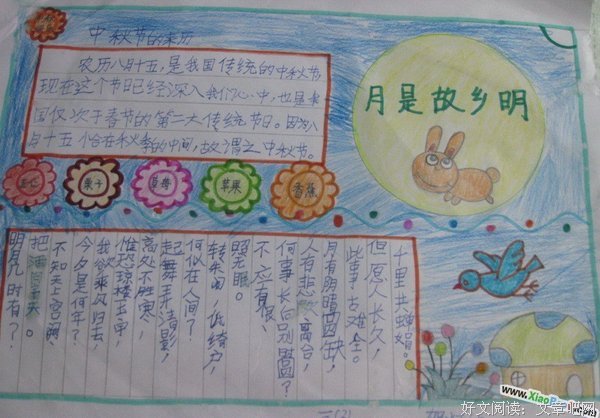 中秋节的来历
农历八月十五,是我国传统的中秋节
现在这个节日已经深入我们心中,也是我
国仅次于春节的第二大传统节日。因为八
月十五恰在秋季的中间,故谓之中秋节。
月是故乡明
五仁
栗子
草莓
苹果
香蕉
明月几时有?
把酒问青天。
不知天上宫阙
今夕是何年?
我欲乘风归去,
惟恐琼楼玉宇,
高处不胜寒,
起舞弄清影,
何似在人间?
转朱阁,低绮户,
照无眠。
不应有恨、
何事长向别时圆?
人有悲欢离合,
月有阴晴圆缺,
此事古难全。
但愿人长久,
千里共婵娟。
三(2)
好文阅读:文章吧网